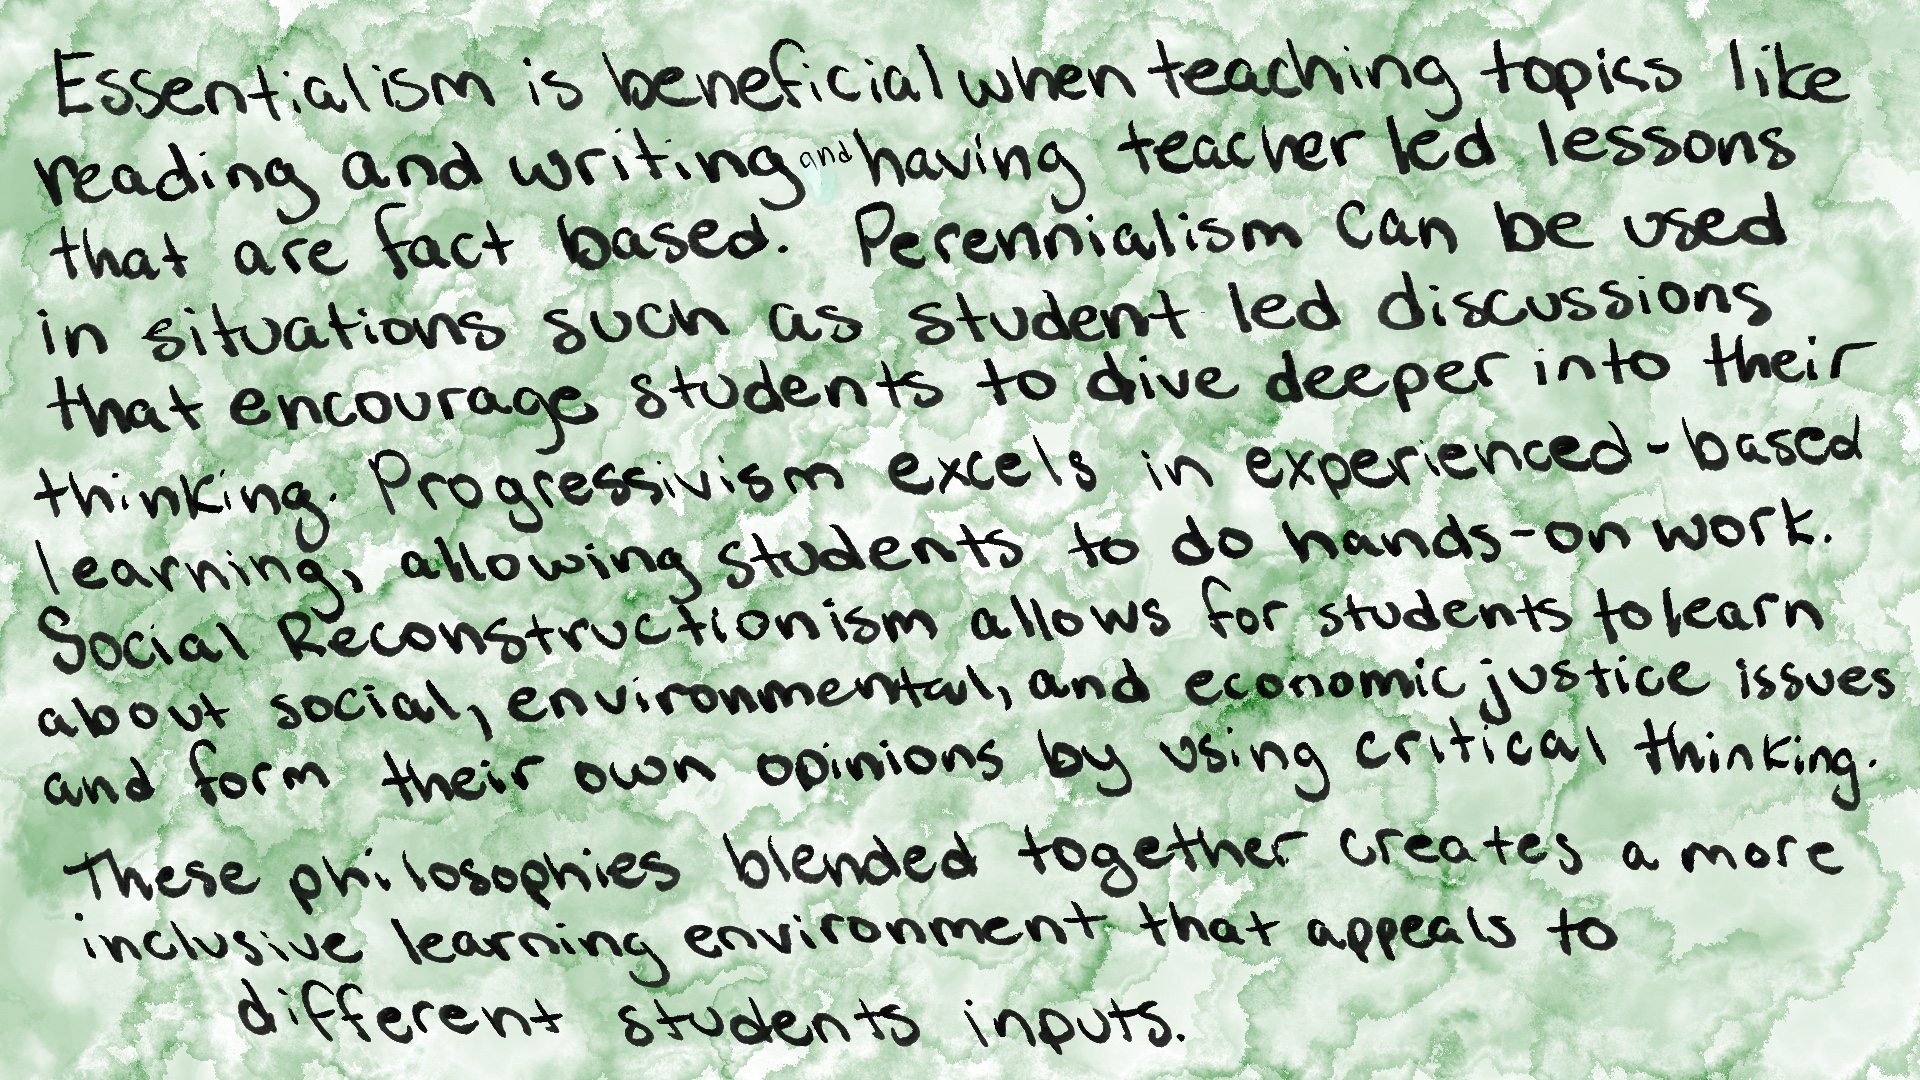 Essentialism is beneficial when teaching topics like
reading and writing and having teacher led lessons
that are fact based. Perennialism can be used
in situations such as student led discussions
that encourage students to dive deeper into their
thinking. Progressivism excels in experienced-based
learning, allowing students to do hands-on work.
Social Reconstructionism allows for students to learn
about social, environmental, and economic justice issues
and form their own opinions by using critical thinking.
These philosophies blended together creates a more
inclusive learning environment that appeals to
different students inputs.